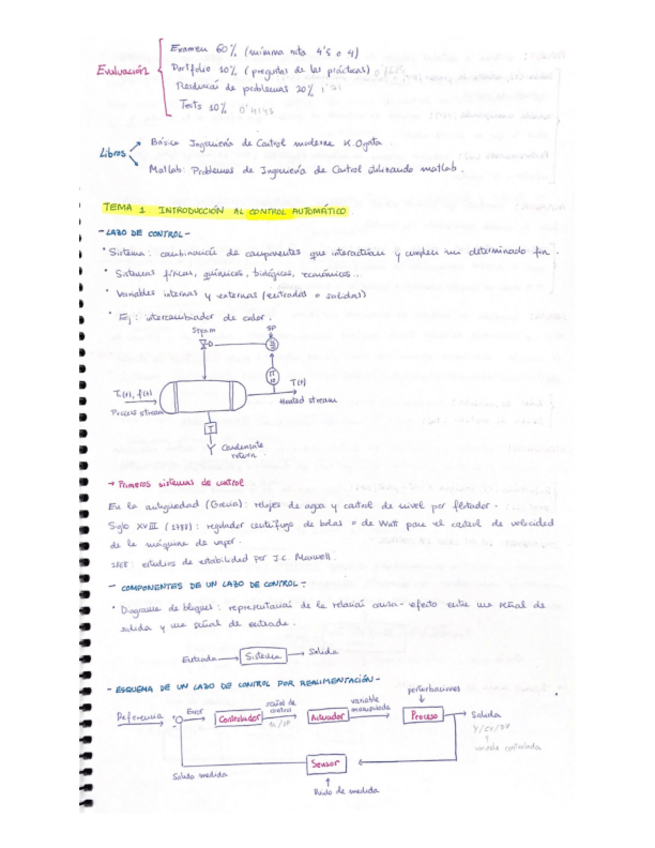 Evaluación
Examen 60% (mínima nota 4's o 4)
Portfolio 10% (preguntas de las prácticas)
Resolución de problemas 20% 1'21
Tests 10% 0'4143
Libros
Básico Ingeniería de Control moderna K. Ogata.
Matlab: Problemas de Ingeniería de Control utilizando matlab.
TEMA 1. INTRODUCCIÓN AL CONTROL AUTOMÁTICO.
- LAZO DE CONTROL -
• Sistema: combinación de componentes que interactúan y cumplen un determinado fin.
• Sistemas físicos, químicos, biológicos, económicos...
• Variables internas y externas (entradas o salidas)
• Ej: intercambiador de calor.
Steam
SP
T(t)
Ti(t), f(t)
Process stream
Heated stream
T
Condensate
return
→ Primeros sistemas de control
En la antigüedad (Grecia): relojes de agua y control de nivel por flotador.
Siglo XVIII (1788): regulador centrífugo de bolas o de Watt para el control de velocidad
de la máquina de vapor.
1868: estudios de estabilidad por J.C. Maxwell.
- COMPONENTES DE UN LAZO DE CONTROL -
• Diagrama de bloques: representación de la relación causa-efecto entre una señal de
salida y una señal de entrada.
Entrada → Sistema → Salida
- ESQUEMA DE UN LAZO DE CONTROL POR REALIMENTACIÓN -
perturbaciones
señal de
control
variable
manipulada
Referencia
Error
Controlador
Actuador
Proceso
Salida
Y/CV/PV
variable controlada
Sensor
Salida medida
Ruido de medida